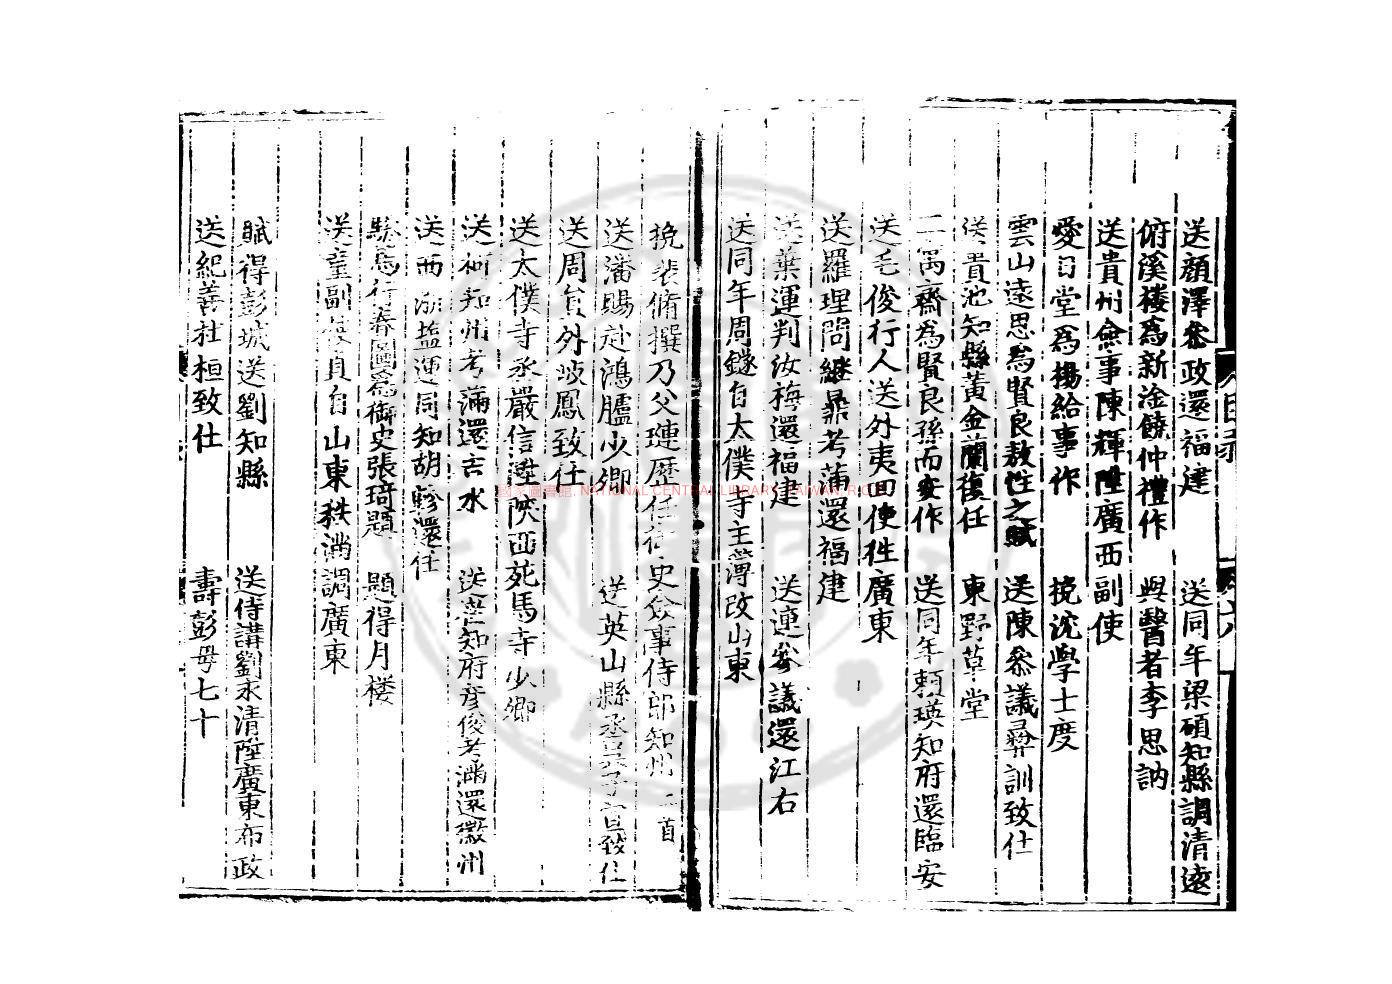 送顏澤叅政還福建　送同年梁碩知縣調清遠
俯溪楼為新淦饒仲禮作　與醫者李思訥
送貴州僉事陳輝陞廣西副使
愛日堂為楊給事作　挽沈學士度
雲山遠思為賢良敖性之賦　送陳叅議彝訓致仕
送貴池知縣黃金蘭復任　東野草堂
二寓齋為賢良孫而安作　送同年賴瑛知府還臨安
送毛俊行人送外夷回使徃廣東
送羅理問継鼎考蒲還福建
送葉運判汝梅還福建　送連叅議還江右
送同年周鐩自太僕寺主薄改山東
挽裴脩撰乃父璉歷任御史僉事侍郎知州　二首
送潘賜赴鴻臚少卿　送英山縣丞子宜致仕
送周員外岐鳳致仕
送太僕寺丞嚴信陞陜西死馬寺少卿
送柯知州考滿還吉水　送知府彦俊考滿還徽州
送西浙塩運同知胡軫還任
驄馬行春圖為御史張琦題　題得月楼
送童副使貞自山東秩滿調廣東
賦得彭城送劉知縣　送侍講劉永清陞廣東布政
送紀善杜桓致仕　壽彭母七十
目录
六
國家圖書館 NATIONAL CENTRAL LIBRARY, TAIWAN, R.O.C.